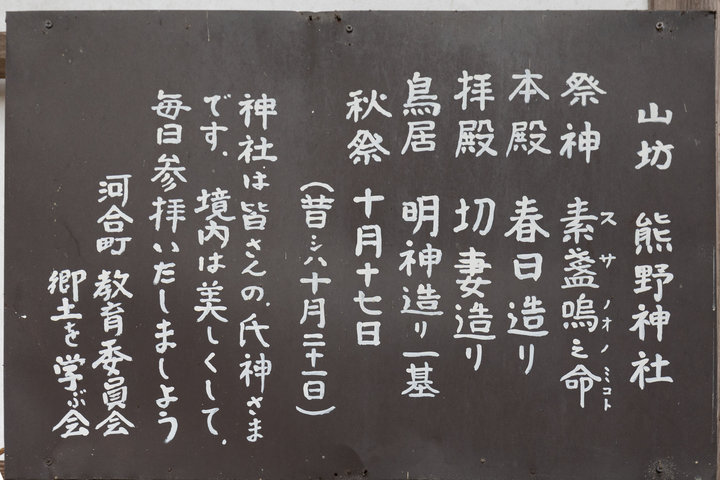 山坊 熊野神社
祭神 素盞嗚之命
スサノオノミコト
本殿 春日造り
拝殿 切妻造り
鳥居 明神造り一基
秋祭 十月十七日
(昔シハ十月二十一日)
神社は皆さんの、氏神さま
です、境内は美しくして、
毎日参拝いたしましよう
河合町 教育委員会
郷土を学ぶ会